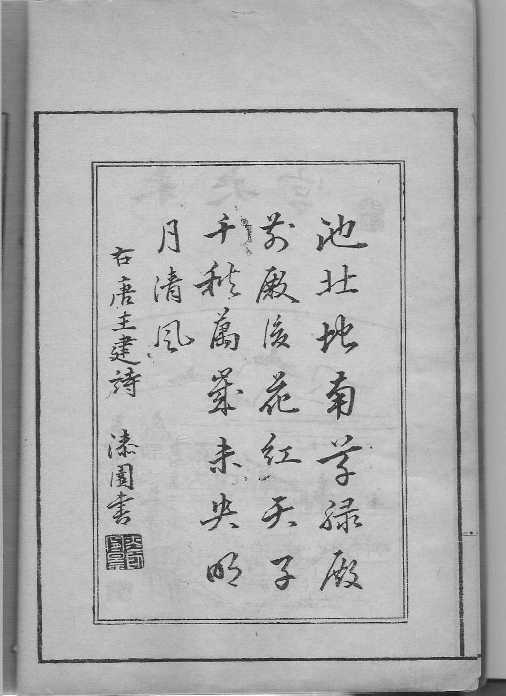 池北池南草緑殿
前殿後花紅天子
千秋萬歲未央明
月清風
右唐王建詩 漆園書